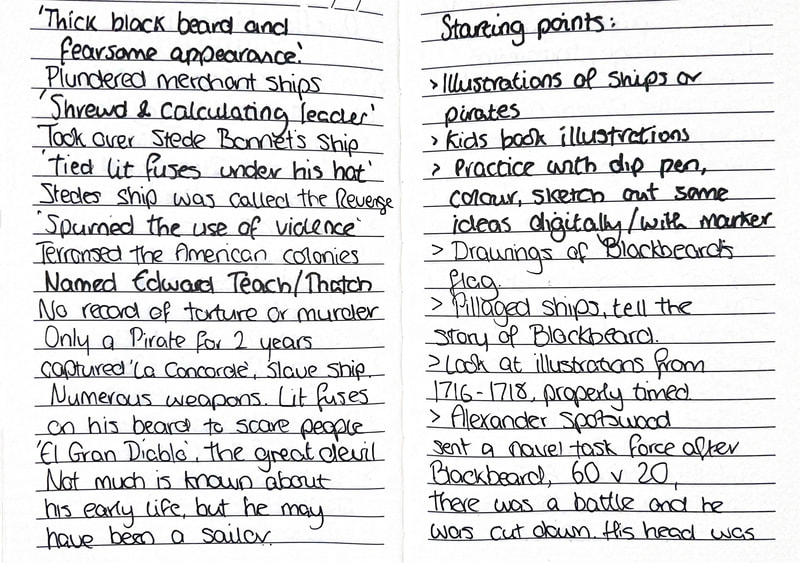 'Thick black beard and
fearsome appearance'.
Plundered merchant ships
'Shrewd & Calculating leader'
Took over Stede Bonnet's ship
'tied lit fuses under his hat'
Stedes ship was called the Revenge
'Spurned the use of violence'
Terrorised the American colonies
Named Edward Teach/Thatch
No record of torture or murder
Only a Pirate for 2 years
captured 'La Concorde', slave ship.
Numerous weapons. Lit fuses
on his beard to scare people
'El Gran Diablo', the great devil
Not much is known about
his early life, but he may
have been a sailor.
Starting points:
> Illustrations of ships or
pirates
> Kids book illustrations
> Practice with dip pen,
colour, sketch out some
ideas digitally/with marker
> Drawings of Blackbeard's
flag.
> Pillaged ships, tell the
story of Blackbeard.
> Look at illustrations from
1716-1718, properly timed.
> Alexander Spotswood
sent a naval task force after
Blackbeard, 60 v 20,
there was a battle and he
was cut down. His head was